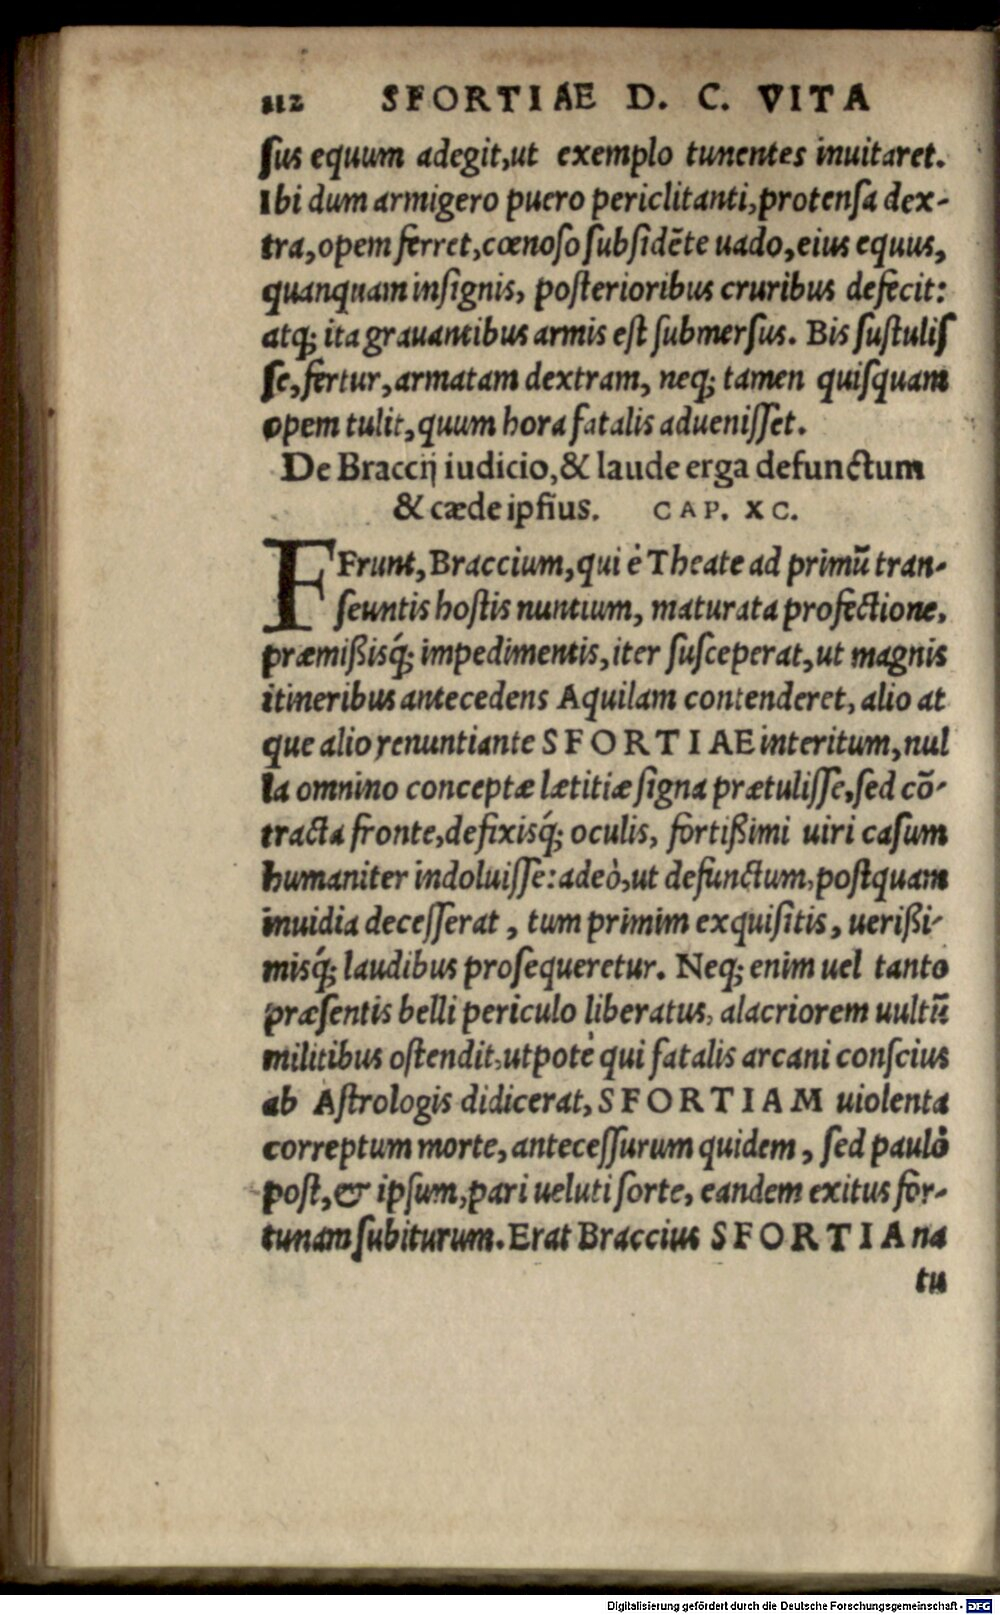 112 SFORTIAE D. C. VITA
ſus equum adegit,ut exemplo tunentes inuitaret.
Ibi dum armigero puero periclitanti,protenſa dex-
tra,opem ferret,cœnoſo ſubſidẽte uado,eius equus,
quanquam inſignis, poſterioribus cruribus defecit:
atq; ita grauantibus armis eſt ſubmerſus. Bis ſuſtuliſ
ſe,fertur,armatam dextram, neq; tamen quiſquam
opem tulit,quum hora fatalis adueniſſet.
De Braccij iudicio,& laude erga defunctum
& cæde ipſius. CAP. XC.
FFrunt, Braccium,qui è Theate ad primũ tran-
ſeuntis hoſtis nuntium, maturata profectione,
præmißisq́; impedimentis,iter ſuſceperat,ut magnis
itineribus antecedens Aquilam contenderet, alio at
que alio renuntiante SFORTIAE interitum,nul
la omnino conceptæ lætitiæ ſigna prætuliſſe,ſed cõ-
tracta fronte,defixisq́; oculis, fortißimi uiri caſum
humaniter indoluiſſe: adeò,ut defunctum,poſtquam
inuidia deceſſerat, tum primim exquiſitis, uerißi-
misq́; laudibus proſequeretur. Neq; enim uel tanto
præſentis belli periculo liberatus, alacriorem uultũ
militibus oſtendit,utpotè qui fatalis arcani conſcius
ab Aſtrologis didicerat, SFORTIAM uiolenta
correptum morte, anteceſſurum quidem, ſed paulò
poſt,& ipſum,pari ueluti ſorte, eandem exitus for-
tunam ſubiturum. Erat Braccius SFORTIA na
tu
Digitalisierung gefördert durch die Deutsche Forschungsgemeinschaft - DFG